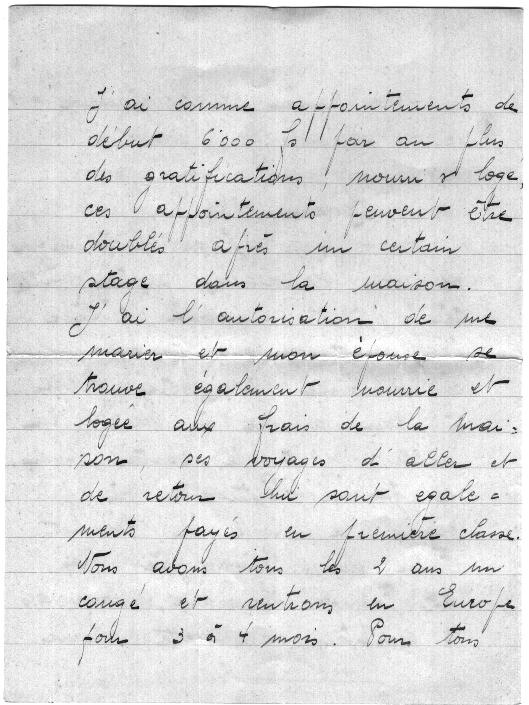 J'ai comme appointements de
début 6'000 fs par an plus
des gratifications, nourri & logé,
ces appointements peuvent être
doublés après un certain
stage dans la maison.
J'ai l'autorisation de me
marier et mon épouse se
trouve également nourrie et
logée aux frais de la mai=
son, ses voyages d'aller et
de retour lui sont egale=
ments payés en première classe.
Nous avons tous les 2 ans un
congé et rentrons en Europe
pour 3 à 4 mois. Pour tous